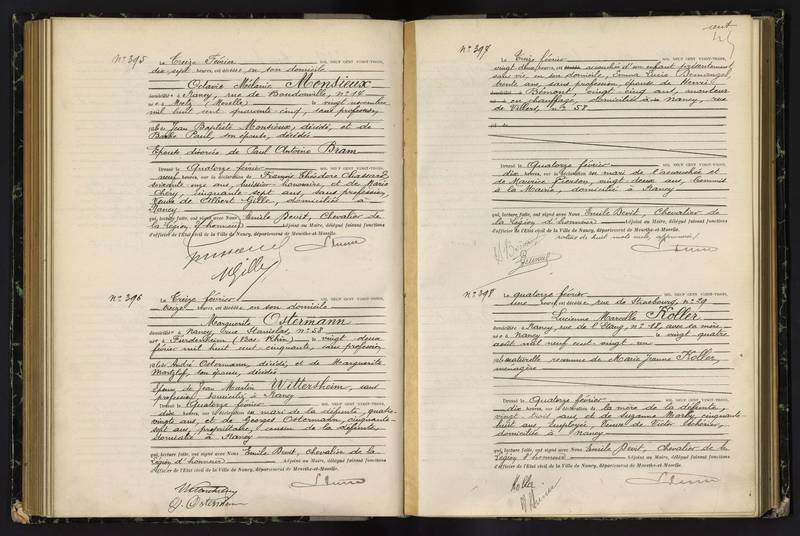 N° 395
Le Treize Février MIL NEUF CENT VINGT-TROIS,
dix sept heures, est décédée en son domicile
Octavie Mélanie Monsieux
domiciliée à Nancy, rue de Boudonville, n° 14
née à Metz (Moselle) le vingt novembre
mil huit cent quarante cinq, sans profession,
fille de Jean Baptiste Monsieux, décédé, et de
Barbe Paul, son épouse, décédée
Epouse divorcée de Paul Antoine Bram
Dressé le Quatorze février MIL NEUF CENT VINGT-TROIS,
neuf heures, sur la déclaration de François Théodore Chassard
soixante onze ans, huissier honoraire, et de Marie
cinquante sept ans, sans profession,
Veuve de Gilbert Gille, domiciliés à
Nancy
qui, lecture faite, ont signé avec Nous Emile Devit, Chevalier de
la Légion d'honneur Adjoint au Maire, délégué faisant fonctions
d'officier de l'Etat civil de la Ville de Nancy, département de Meurthe-et-Moselle.
N° 396
Le Treize février MIL NEUF CENT VINGT-TROIS,
treize heures, est décédée en son domicile
Marguerite Ostermann
domiciliée à Nancy, rue Stanislas, n° 58
née à Furdenheim (Bas Rhin) le vingt deux
février mil huit cent cinquante, sans profession
fille de André Ostermann, décédé, et de Marguerite
son épouse, décédée
Epouse de Jean Martin Wittersheim, sans
profession, domicilié à Nancy
Dressé le Quatorze février MIL NEUF CENT VINGT-TROIS,
dix heures, sur la déclaration du mari de la défunte, quatre
vingts ans, et de Georges Ostermann, cinquante
sept ans, propriétaire, cousin de la défunte,
domiciliés à Nancy
qui, lecture faite, ont signé avec Nous Emile Devit, Chevalier de la
Légion d'honneur Adjoint au Maire, délégué faisant fonctions
d'officier de l'Etat civil de la Ville de Nancy, département de Meurthe-et-Moselle.
N° 397
Le Treize février MIL NEUF CENT VINGT-TROIS,
vingt deux heures, est accouchée d'un enfant présentement
sans vie, en son domicile, Emma Lucie Demangel,
trente ans, sans profession, épouse de Henri
Bémont, vingt cinq ans, monteur
en chauffage, domiciliés à Nancy, rue
de Villers, n° 58
Dressé le Quatorze février MIL NEUF CENT VINGT-TROIS,
dix heures, sur la déclaration du mari de l'accouchée et
de Maurice Pierson, vingt deux ans, Commis
à la Mairie, domicilié à Nancy
qui, lecture faite, ont signé avec Nous Emile Devit, Chevalier de
la Légion d'honneur Adjoint au Maire, délégué faisant fonctions
d'officier de l'Etat civil de la Ville de Nancy, département de Meurthe-et-Moselle.
N° 398
Le quatorze février MIL NEUF CENT VINGT-TROIS,
une heure, est décédée rue de Strasbourg, n° 29
Lucienne Marcelle Koller
domiciliée à Nancy, rue de l'Etang, n° 18, avec sa mère
née à Nancy le vingt quatre
août mil neuf cent vingt un
fille naturelle reconnue de Marie Jeanne Koller,
ménagère
Dressé le Quatorze février MIL NEUF CENT VINGT-TROIS,
dix heures, sur la déclaration de la mère de la défunte,
vingt trois ans, et de Suzanne Marty, cinquante
huit ans, Employée, Veuve de Victor
domiciliées à Nancy
qui, lecture faite, ont signé avec Nous Emile Devit, Chevalier de la
Légion d'honneur Adjoint au Maire, délégué faisant fonctions
d'officier de l'Etat civil de la Ville de Nancy, département de Meurthe-et-Moselle.
Koller